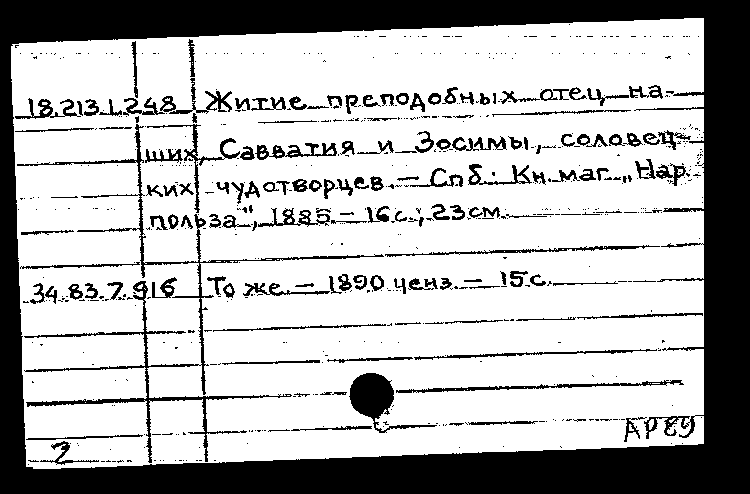 18.213.1.248 Житие преподобных отец на-
ших, Савватия и Зосимы, соловец-
ких чудотворцев. — Спб.: Кн. маг. „Нар.
польза", 1885. — 16 с.; 23 см.
34.83.7.916 То же. — 1890 ценз. — 15 с.
2
АР 89